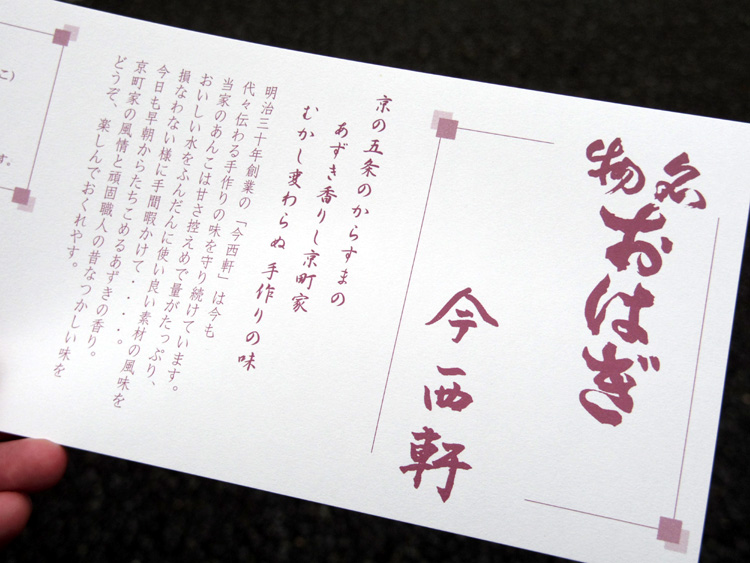 名物
おはぎ
今西軒
京の五条のからすまの
あずき香りし京町家
むかし変わらぬ 手作りの味
明治三十年創業の「今西軒」は今も
代々伝わる手作りの味を守り続けています。
当家のあんこは甘さ控えめで量がたっぷり、
おいしい水をふんだんに使い良い素材の風味を
損なわない様に手間暇かけて・・・・。
今日も早朝からたちこめるあずきの香り。
京町家の風情と頑固職人の昔なつかしい味を
どうぞ、楽しんでおくれやす。
こ）
す。